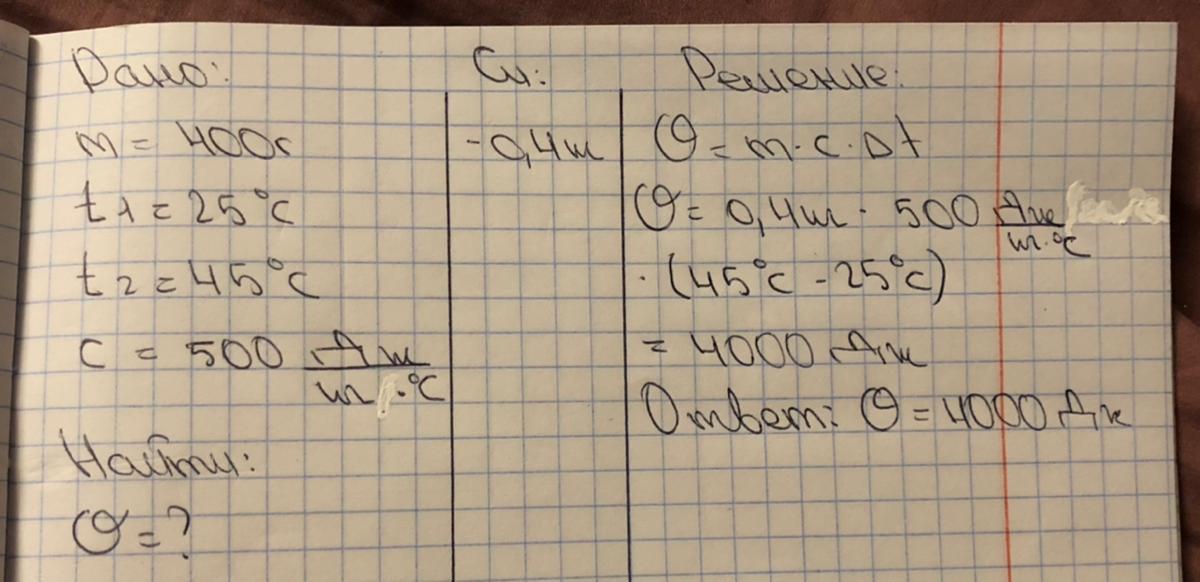 Дано:
m = 400г
t1 = 25°C
t2 = 45°C
c = 500 Дж/кг·°C
Найти:
Q = ?
Си:
- 0,4кг
Решение:
Q = m·c·Δt
Q = 0,4кг · 500 Дж/кг·°C
· (45°C - 25°C)
= 4000 Дж
Ответ: Q = 4000 Дж